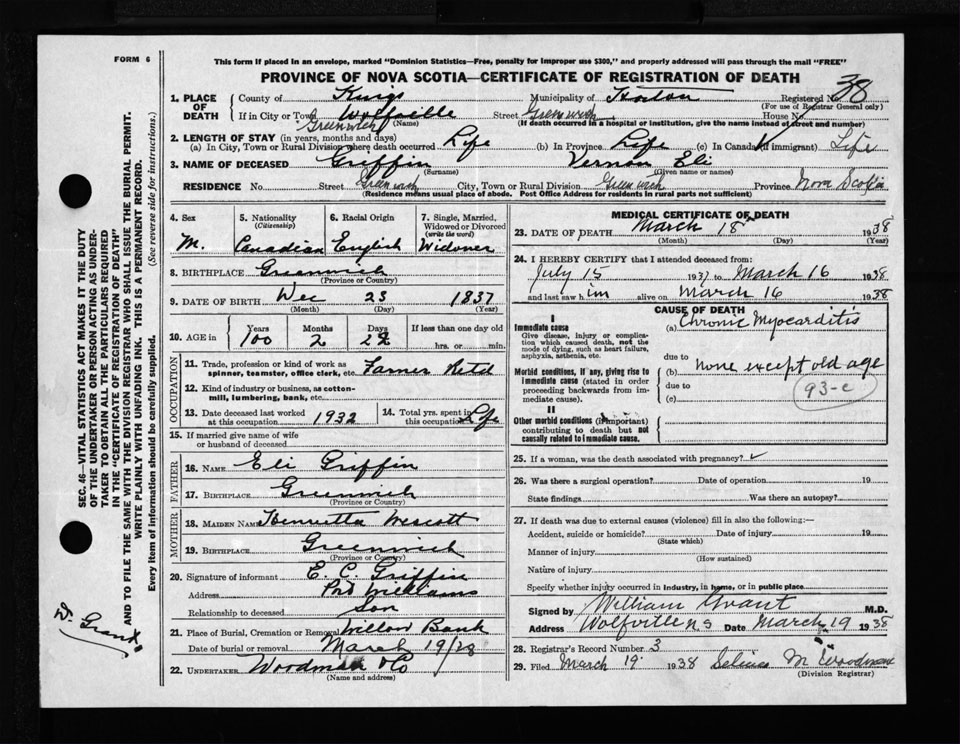 FORM 6
This form if placed in an envelope, marked "Dominion Statistics—Free, penalty for improper use $300," and properly addressed will pass through the mail "FREE"
PROVINCE OF NOVA SCOTIA—CERTIFICATE OF REGISTRATION OF DEATH
38
1. PLACE OF DEATH County of Kings Municipality of Horton Registered No.
(For use of Registrar General only)
If in City or Town Wolfville Street Greenwich House No.
Greenwich (Name) (If death occurred in a hospital or institution, give the name instead of street and number)
2. LENGTH OF STAY (in years, months and days)
(a) In City, Town or Rural Division where death occurred Life (b) In Province Life (c) In Canada (if immigrant) Life
3. NAME OF DECEASED Griffin Vernon Eli
(Surname) (Given name or names)
RESIDENCE No. Street Greenwich City, Town or Rural Division Greenwich Province Nova Scotia
(Residence means usual place of abode. Post Office Address for residents in rural parts not sufficient)
4. Sex 5. Nationality (Citizenship) 6. Racial Origin 7. Single, Married, Widowed or Divorced (write the word)
M. Canadian English Widower
8. BIRTHPLACE Greenwich
(Province or Country)
9. DATE OF BIRTH Dec 23 1837
(Month) (Day) (Year)
10. AGE in Years Months Days If less than one day old
100 2 hrs. or min.
OCCUPATION
11. Trade, profession or kind of work as spinner, teamster, office clerk, etc. Farmer Retd
12. Kind of industry or business, as cotton-mill, lumbering, bank, etc.
13. Date deceased last worked at this occupation 1932 14. Total yrs. spent in this occupation Life
15. If married give name of wife or husband of deceased
FATHER
16. NAME Eli Griffin
17. BIRTHPLACE Greenwich
MOTHER
18. MAIDEN NAME Henrietta Wescott
19. BIRTHPLACE Greenwich
(Province or Country)
20. Signature of informant E. C. Griffin
Address Port Williams
Relationship to deceased Son
21. Place of Burial, Cremation or Removal Willow Bank
Date of burial or removal March 19/
22. UNDERTAKER Woodman & Co
(Name and address)
MEDICAL CERTIFICATE OF DEATH
23. DATE OF DEATH March 18 1938
(Month) (Day) (Year)
24. I HEREBY CERTIFY that I attended deceased from:
July 15 1937 to March 16 1938
and last saw him alive on March 16 1938
CAUSE OF DEATH
I
Immediate cause (a) Chronic Myocarditis
Give disease, injury or complication which caused death, not the mode of dying, such as heart failure, asphyxia, asthenia, etc.
due to
Morbid conditions, if any, giving rise to immediate cause (stated in order proceeding backwards from immediate cause). (b) none except old age
due to
(c) 93-c
II
Other morbid conditions (if important) contributing to death but not causally related to immediate cause.
25. If a woman, was the death associated with pregnancy?
26. Was there a surgical operation? Date of operation 19
State findings Was there an autopsy?
27. If death was due to external causes (violence) fill in also the following:—
Accident, suicide or homicide? Date of injury 19
(State which)
Manner of injury
(How sustained)
Nature of injury
Specify whether injury occurred in industry, in home, or in public place
Signed by William Grant M.D.
Address Wolfville NS Date March 19 1938
28. Registrar's Record Number 3
29. Filed March 19 1938 M Woodman
(Division Registrar)
SEC. 46—VITAL STATISTICS ACT MAKES IT THE DUTY
OF THE UNDERTAKER OR PERSON ACTING AS UNDER-
TAKER TO OBTAIN ALL THE PARTICULARS REQUIRED
IN THE "CERTIFICATE OF REGISTRATION OF DEATH"
AND TO FILE THE SAME WITH THE DIVISION REGISTRAR WHO SHALL ISSUE THE BURIAL PERMIT.
WRITE PLAINLY WITH UNFADING INK. THIS IS A PERMANENT RECORD.
Every item of information should be carefully supplied. (See reverse side for instructions.)